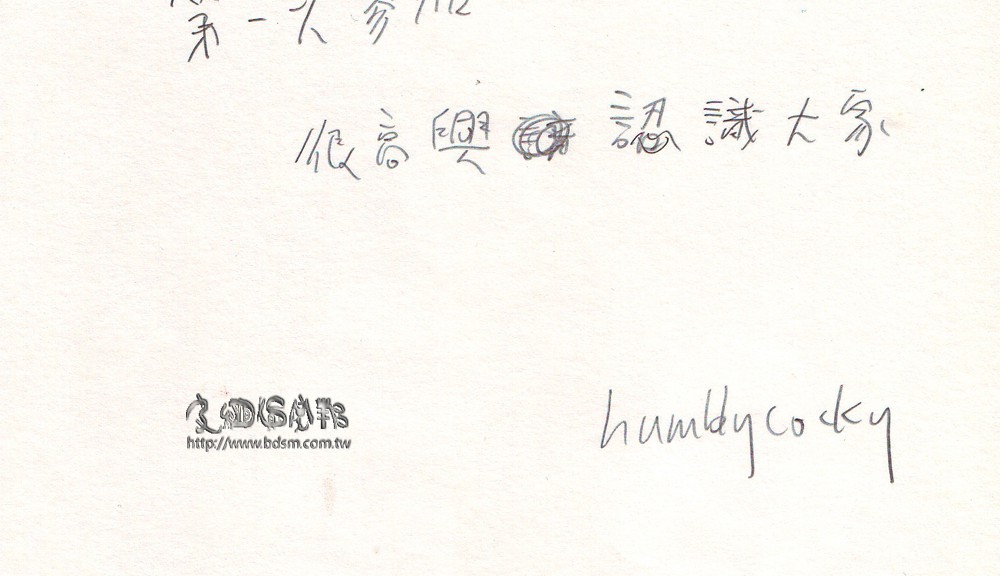 第一次參加
很高興認識大家
http://www.bdsm.com.tw
humblycocky